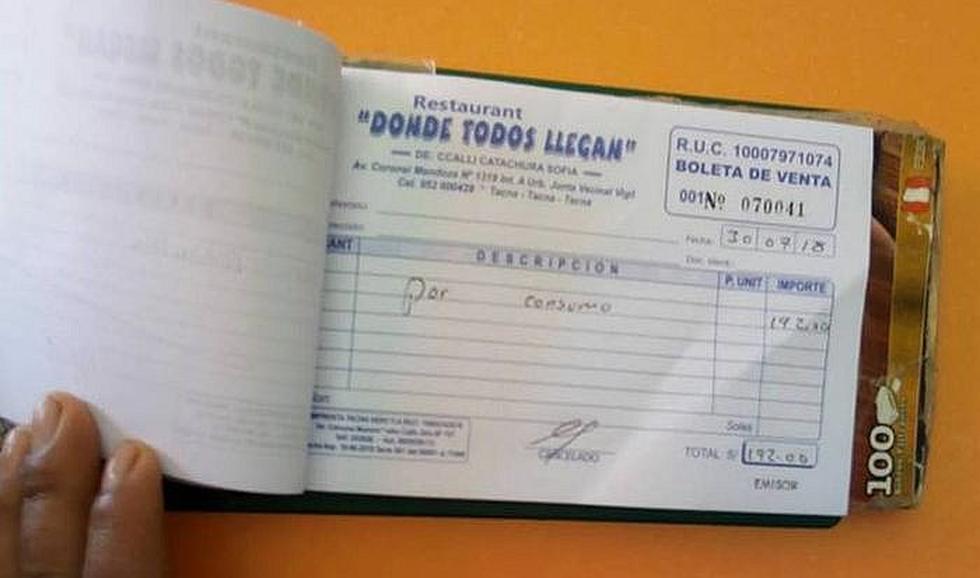 Restaurant
"DONDE TODOS LLEGAN"
DE: CCALLI CATACHURA SOFIA
Av. Coronel Mendoza Nº 1319 Int. A Urb. Junta Vecinal Vigil
Cel. 952 800429 * Tacna - Tacna - Tacna
R.U.C. 10007971074
BOLETA DE VENTA
001 Nº 070041
Fecha: 30 07 18
Doc. Ident.:
ANT DESCRIPCIÓN P. UNIT IMPORTE
Por consumo
192.00
Soles
CANCELADO
TOTAL S/ 192.00
EMISOR
100